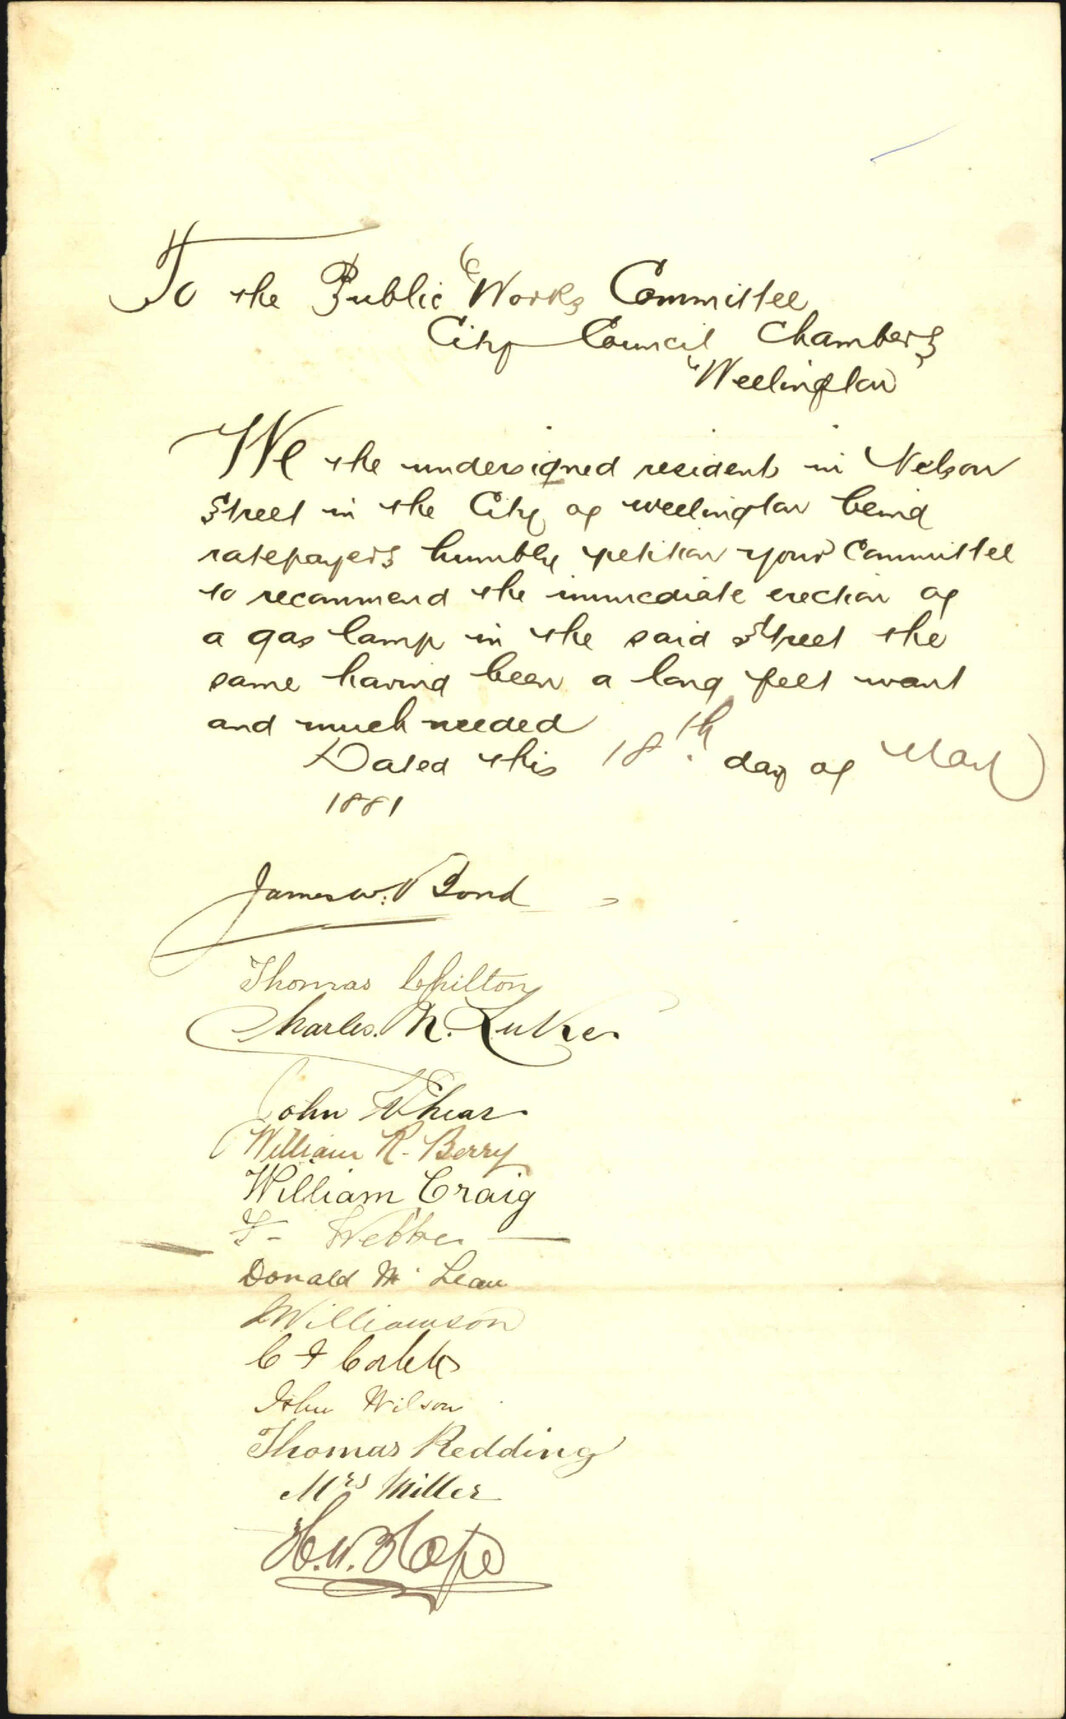 To the Public Works Committee
City Council Chambers
"Wellington"
We the undersigned residents in Nelson
Street in the City of Wellington being
ratepayers humbly petition your Committee
to recommend the immediate erection of
a gas lamp in the said Street the
same having been a long felt want
and much needed
Dated this 18th day of May
1881
James W. Bond
Thomas Chilton
Charles. N. Luke.
John
William R. Berry
William Craig
Webber
Donald Mc Lean
Williamson
C
John Wilson
Thomas Redding
Mrs Miller
H. W. Hope